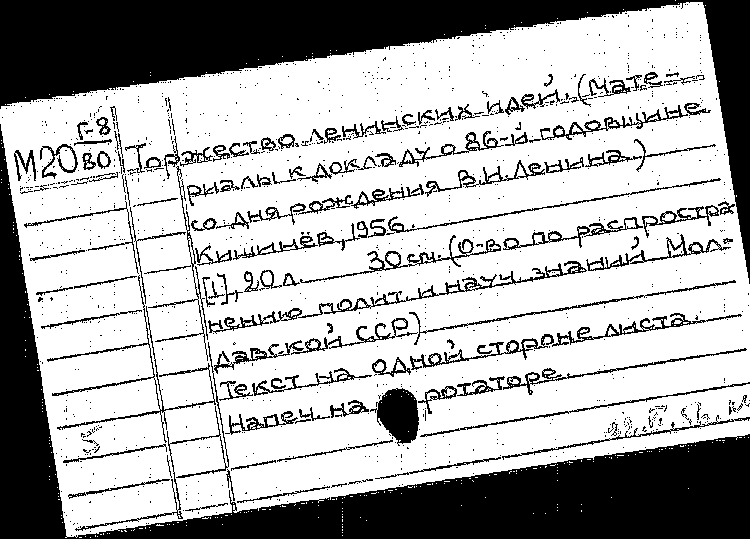 Г-8
М20 ВО
Торжество ленинских идей. (Мате-
риалы к докладу о 86-й годовщине
со дня рождения В.И.Ленина.)
Кишинёв, 1956.
[1], 20 л. 30 см. (О-во по распростра-
нению полит. и науч. знаний Мол-
давской ССР)
Текст на одной стороне листа.
Напеч. на ротаторе.
5